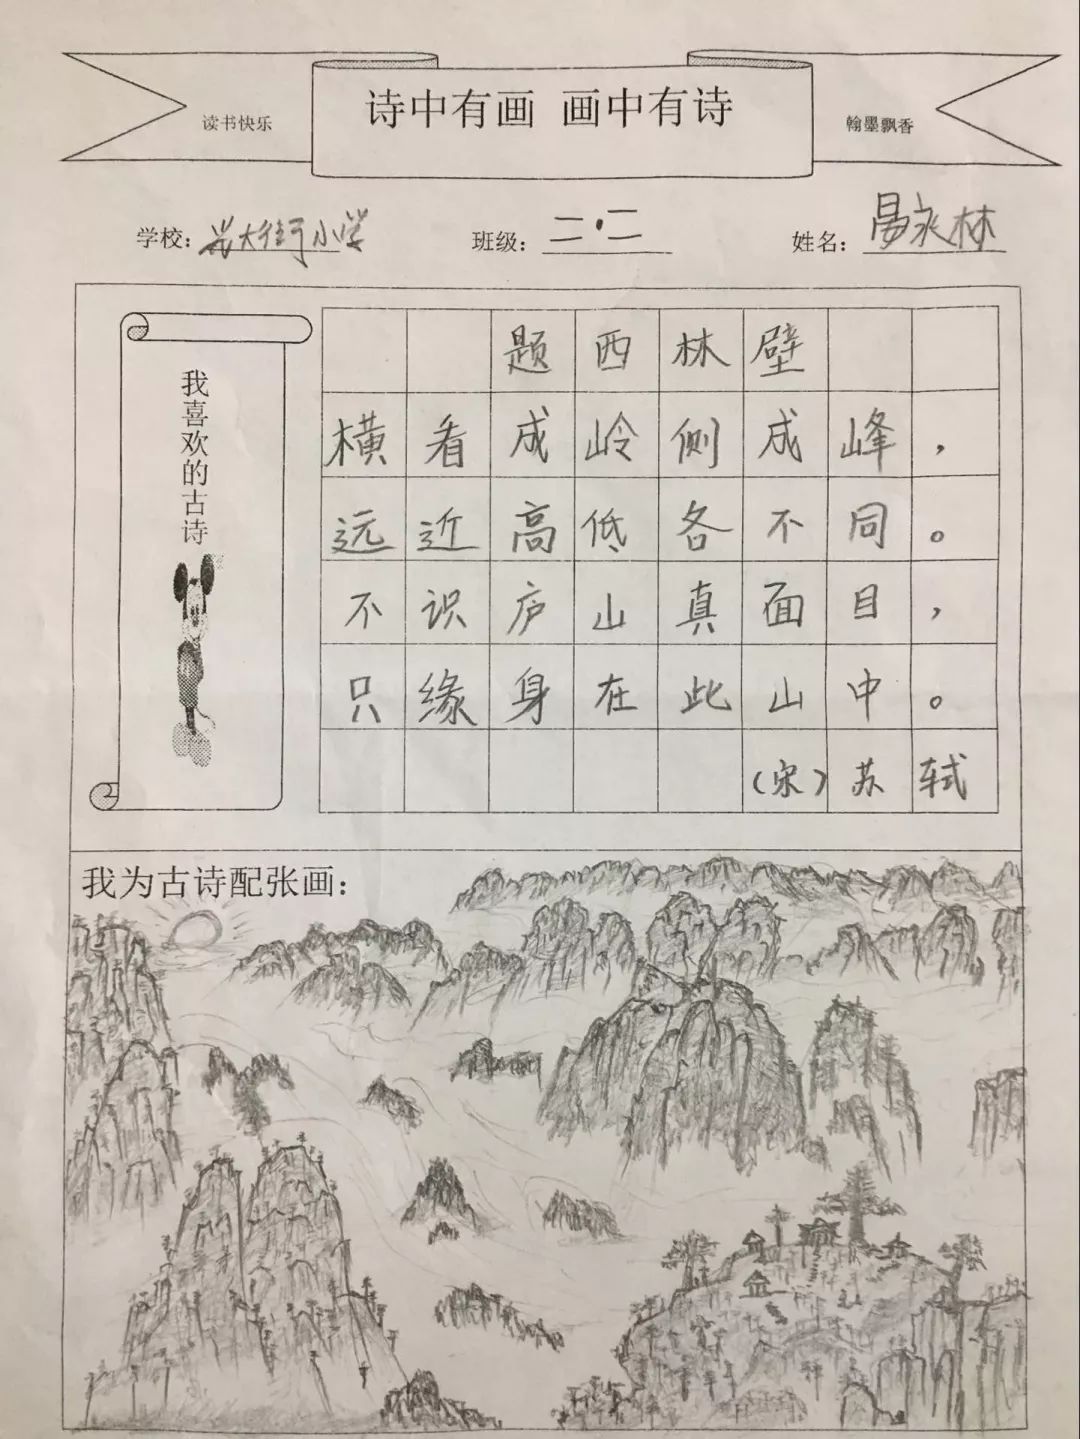 诗中有画 画中有诗
读书快乐
翰墨飘香
学校：大街小学
班级：二·二
姓名：易永林
我喜欢的古诗
题西林壁
横看成岭侧成峰，
远近高低各不同。
不识庐山真面目，
只缘身在此山中。
（宋）苏轼
我为古诗配张画：